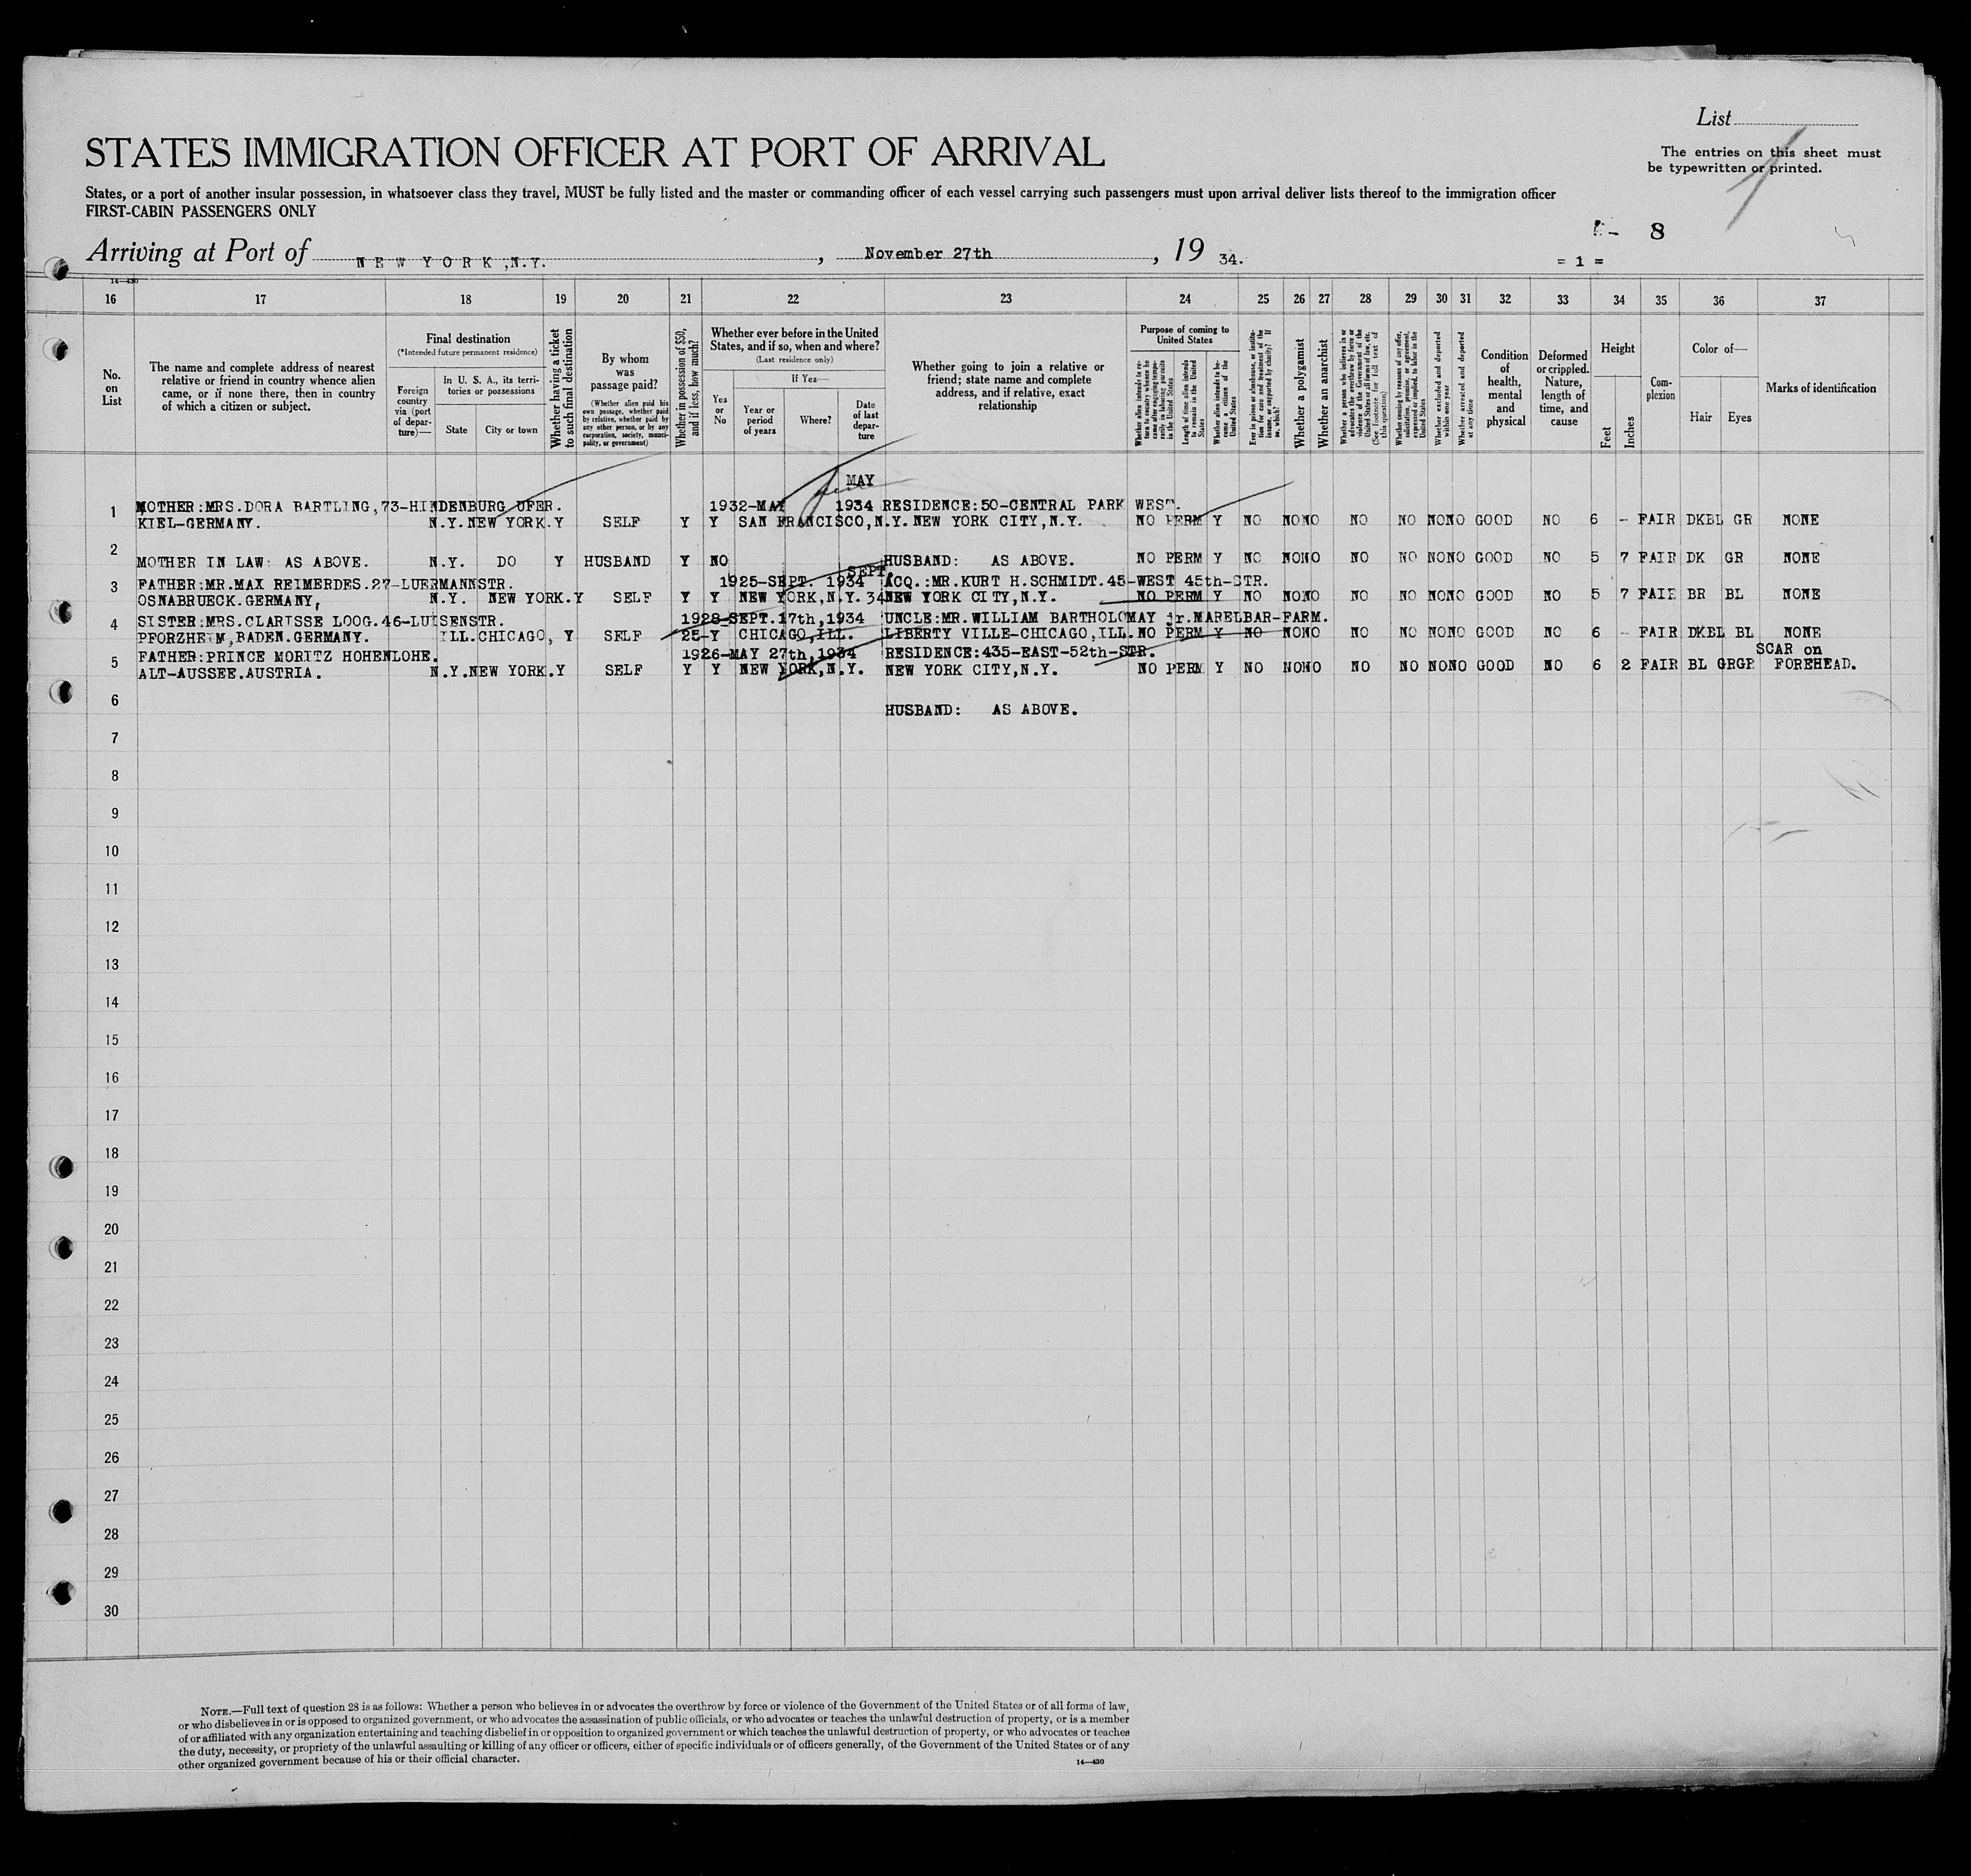 List
STATES IMMIGRATION OFFICER AT PORT OF ARRIVAL
The entries on this sheet must
be typewritten or printed.
States, or a port of another insular possession, in whatsoever class they travel, MUST be fully listed and the master or commanding officer of each vessel carrying such passengers must upon arrival deliver lists thereof to the immigration officer
FIRST-CABIN PASSENGERS ONLY
8
Arriving at Port of NEW YORK,N.Y. , November 27th , 19 34.
= 1 =
14—430
16 17 18 19 20 21 22 23 24 25 26 27 28 29 30 31 32 33 34 35 36 37
No.
on
List
The name and complete address of nearest
relative or friend in country whence alien
came, or if none there, then in country
of which a citizen or subject.
Final destination
(*Intended future permanent residence)
Foreign
country
via (port
of depar-
ture)—
In U. S. A., its terri-
tories or possessions
State
City or town
Whether having a ticket
to such final destination
By whom
was
passage paid?
(Whether alien paid his
own passage, whether paid
by relative, whether paid by
any other person, or by any
corporation, society, munici-
pality, or government)
Whether in possession of $50,
and if less, how much?
Whether ever before in the United
States, and if so, when and where?
(Last residence only)
If Yes—
Yes
or
No
Year or
period
of years
Where?
Date
of last
depar-
ture
Whether going to join a relative or
friend; state name and complete
address, and if relative, exact
relationship
Purpose of coming to
United States
Whether alien intends to re-
turn to country whence he
came after engaging tempo-
rarily in laboring pursuits
in the United States
Length of time alien intends
to remain in the United
States
Whether alien intends to be-
come a citizen of the
United States
Ever in prison or almshouse, or institu-
tion for care and treatment of the
insane, or supported by charity? If
so, which?
Whether a polygamist
Whether an anarchist
Whether a person who believes in or
advocates the overthrow by force or
violence of the Government of the
United States or all forms of law, etc.
(See footnote for full text of
this question)
Whether coming by reason of any offer,
solicitation, promise, or agreement,
expressed or implied, to labor in the
United States
Whether excluded and deported
within one year
Whether arrested and deported
at any time
Condition
of
health,
mental
and
physical
Deformed
or crippled.
Nature,
length of
time, and
cause
Height
Feet
Inches
Com-
plexion
Color of—
Hair
Eyes
Marks of identification
MAY
MOTHER:MRS.DORA BARTLING,73-HINDENBURG UFER. 1932-MAY 1934 RESIDENCE:50-CENTRAL PARK WEST.
1 KIEL-GERMANY. N.Y.NEW YORK.Y SELF Y Y SAN FRANCISCO,N.Y.NEW YORK CITY,N.Y. NO PERM Y NO NO NO NO NO NO NO GOOD NO 6 - FAIR DKBL GR NONE
2 MOTHER IN LAW: AS ABOVE. N.Y. DO Y HUSBAND Y NO HUSBAND: AS ABOVE. NO PERM Y NO NO NO NO NO NO NO GOOD NO 5 7 FAIR DK GR NONE
SEPT.
3 FATHER:MR.MAX REIMERDES.27-LUERMANNSTR. 1925-SEPT. 1934 ACQ.:MR.KURT H.SCHMIDT.45-WEST 45th-STR.
OSNABRUECK.GERMANY, N.Y. NEW YORK.Y SELF Y Y NEW YORK,N.Y. 34 NEW YORK CITY,N.Y. NO PERM Y NO NO NO NO NO NO NO GOOD NO 5 7 FAIR BR BL NONE
4 SISTER:MRS.CLARISSE LOOG.46-LUISENSTR. 1928-SEPT.17th,1934 UNCLE:MR.WILLIAM BARTHOLOMAY jr.MARELBAR-FARM.
PFORZHEIM,BADEN.GERMANY. ILL.CHICAGO, Y SELF 25-Y CHICAGO,ILL. LIBERTY VILLE-CHICAGO,ILL.NO PERM Y NO NO NO NO NO NO NO GOOD NO 6 - FAIR DKBL BL NONE
5 FATHER:PRINCE MORITZ HOHENLOHE. 1926-MAY 27th,1934 RESIDENCE:435-EAST-52th-STR. SCAR on
ALT-AUSSEE.AUSTRIA. N.Y.NEW YORK.Y SELF Y Y NEW YORK,N.Y. NEW YORK CITY,N.Y. NO PERM Y NO NO NO NO NO NO NO GOOD NO 6 2 FAIR BL GRGR FOREHEAD.
6 HUSBAND: AS ABOVE.
7
8
9
10
11
12
13
14
15
16
17
18
19
20
21
22
23
24
25
26
27
28
29
30
NOTE.—Full text of question 28 is as follows: Whether a person who believes in or advocates the overthrow by force or violence of the Government of the United States or of all forms of law,
or who disbelieves in or is opposed to organized government, or who advocates the assassination of public officials, or who advocates or teaches the unlawful destruction of property, or is a member
of or affiliated with any organization entertaining and teaching disbelief in or opposition to organized government or which teaches the unlawful destruction of property, or who advocates or teaches
the duty, necessity, or propriety of the unlawful assaulting or killing of any officer or officers, either of specific individuals or of officers generally, of the Government of the United States or of any
other organized government because of his or their official character.
14—430